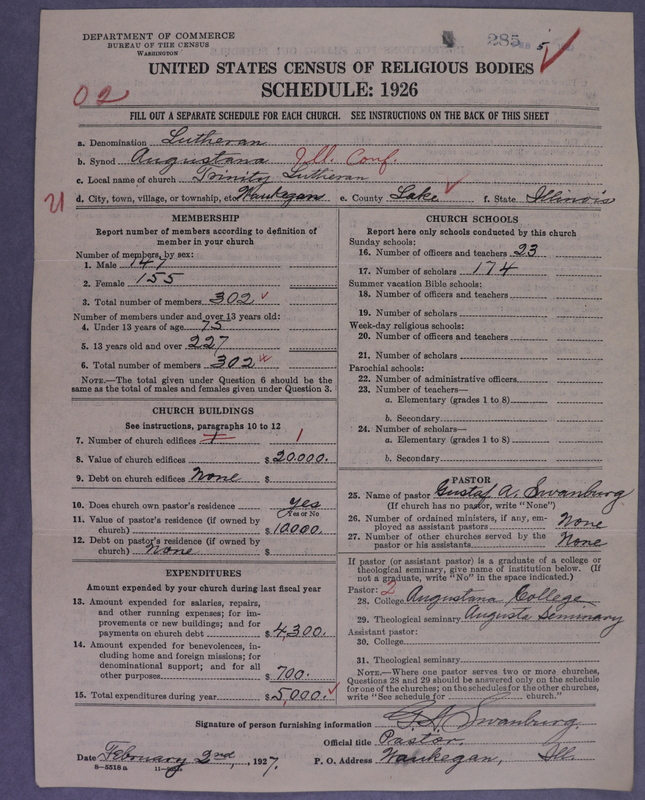 DEPARTMENT OF COMMERCE
BUREAU OF THE CENSUS
WASHINGTON
285
5
UNITED STATES CENSUS OF RELIGIOUS BODIES
SCHEDULE: 1926
02
FILL OUT A SEPARATE SCHEDULE FOR EACH CHURCH. SEE INSTRUCTIONS ON THE BACK OF THIS SHEET
a. Denomination Lutheran
b. Synod Augustana Ill. Conf.
c. Local name of church Trinity Lutheran
d. City, town, village, or township, etc. Waukegan e. County Lake f. State Illinois
MEMBERSHIP
Report number of members according to definition of
member in your church
Number of members, by sex:
1. Male 147
2. Female 155
3. Total number of members 302
Number of members under and over 13 years old:
4. Under 13 years of age 75
5. 13 years old and over 227
6. Total number of members 302
NOTE.—The total given under Question 6 should be the
same as the total of males and females given under Question 3.
CHURCH BUILDINGS
See instructions, paragraphs 10 to 12
7. Number of church edifices 1 1
8. Value of church edifices $ 20.000.
9. Debt on church edifices None $
10. Does church own pastor's residence Yes
Yes or No
11. Value of pastor's residence (if owned by
church) $ 10.000.
12. Debt on pastor's residence (if owned by
church) None $
EXPENDITURES
Amount expended by church during last fiscal year
13. Amount expended for salaries, repairs,
and other running expenses; for im-
provements or new buildings; and for
payments on church debt $ 4,300.
14. Amount expended for benevolences, in-
cluding home and foreign missions; for
denominational support; and for all
other purposes $ 700.
15. Total expenditures during year $ 5,000.
CHURCH SCHOOLS
Report here only schools conducted by this church
Sunday schools:
16. Number of officers and teachers 23
17. Number of scholars 174
Summer vacation Bible schools:
18. Number of officers and teachers
19. Number of scholars
Week-day religious schools:
20. Number of officers and teachers
21. Number of scholars
Parochial schools:
22. Number of administrative officers
23. Number of teachers—
a. Elementary (grades 1 to 8)
b. Secondary
24. Number of scholars—
a. Elementary (grades 1 to 8)
b. Secondary
PASTOR
25. Name of pastor Gustaf A. Swanburg
(If church has no pastor, write "None")
26. Number of ordained ministers, if any, em-
ployed as assistant pastors None
27. Number of other churches served by the
pastor or his assistants None
If pastor (or assistant pastor) is a graduate of a college or
theological seminary, give name of institution below. (If
not a graduate, write "No" in the space indicated.)
Pastor: 2
28. College Augustana College
29. Theological seminary Augusta Seminary
Assistant pastor:
30. College
31. Theological seminary
NOTE.—Where one pastor serves two or more churches,
Questions 28 and 29 should be answered only on the schedule
for one of the churches; on the schedules for the other churches,
write "See schedule for church."
Signature of person furnishing information G. A. Swanburg.
Official title Pastor.
Date February 2nd, 1927. P. O. Address Waukegan, Ill.
8—5518 a